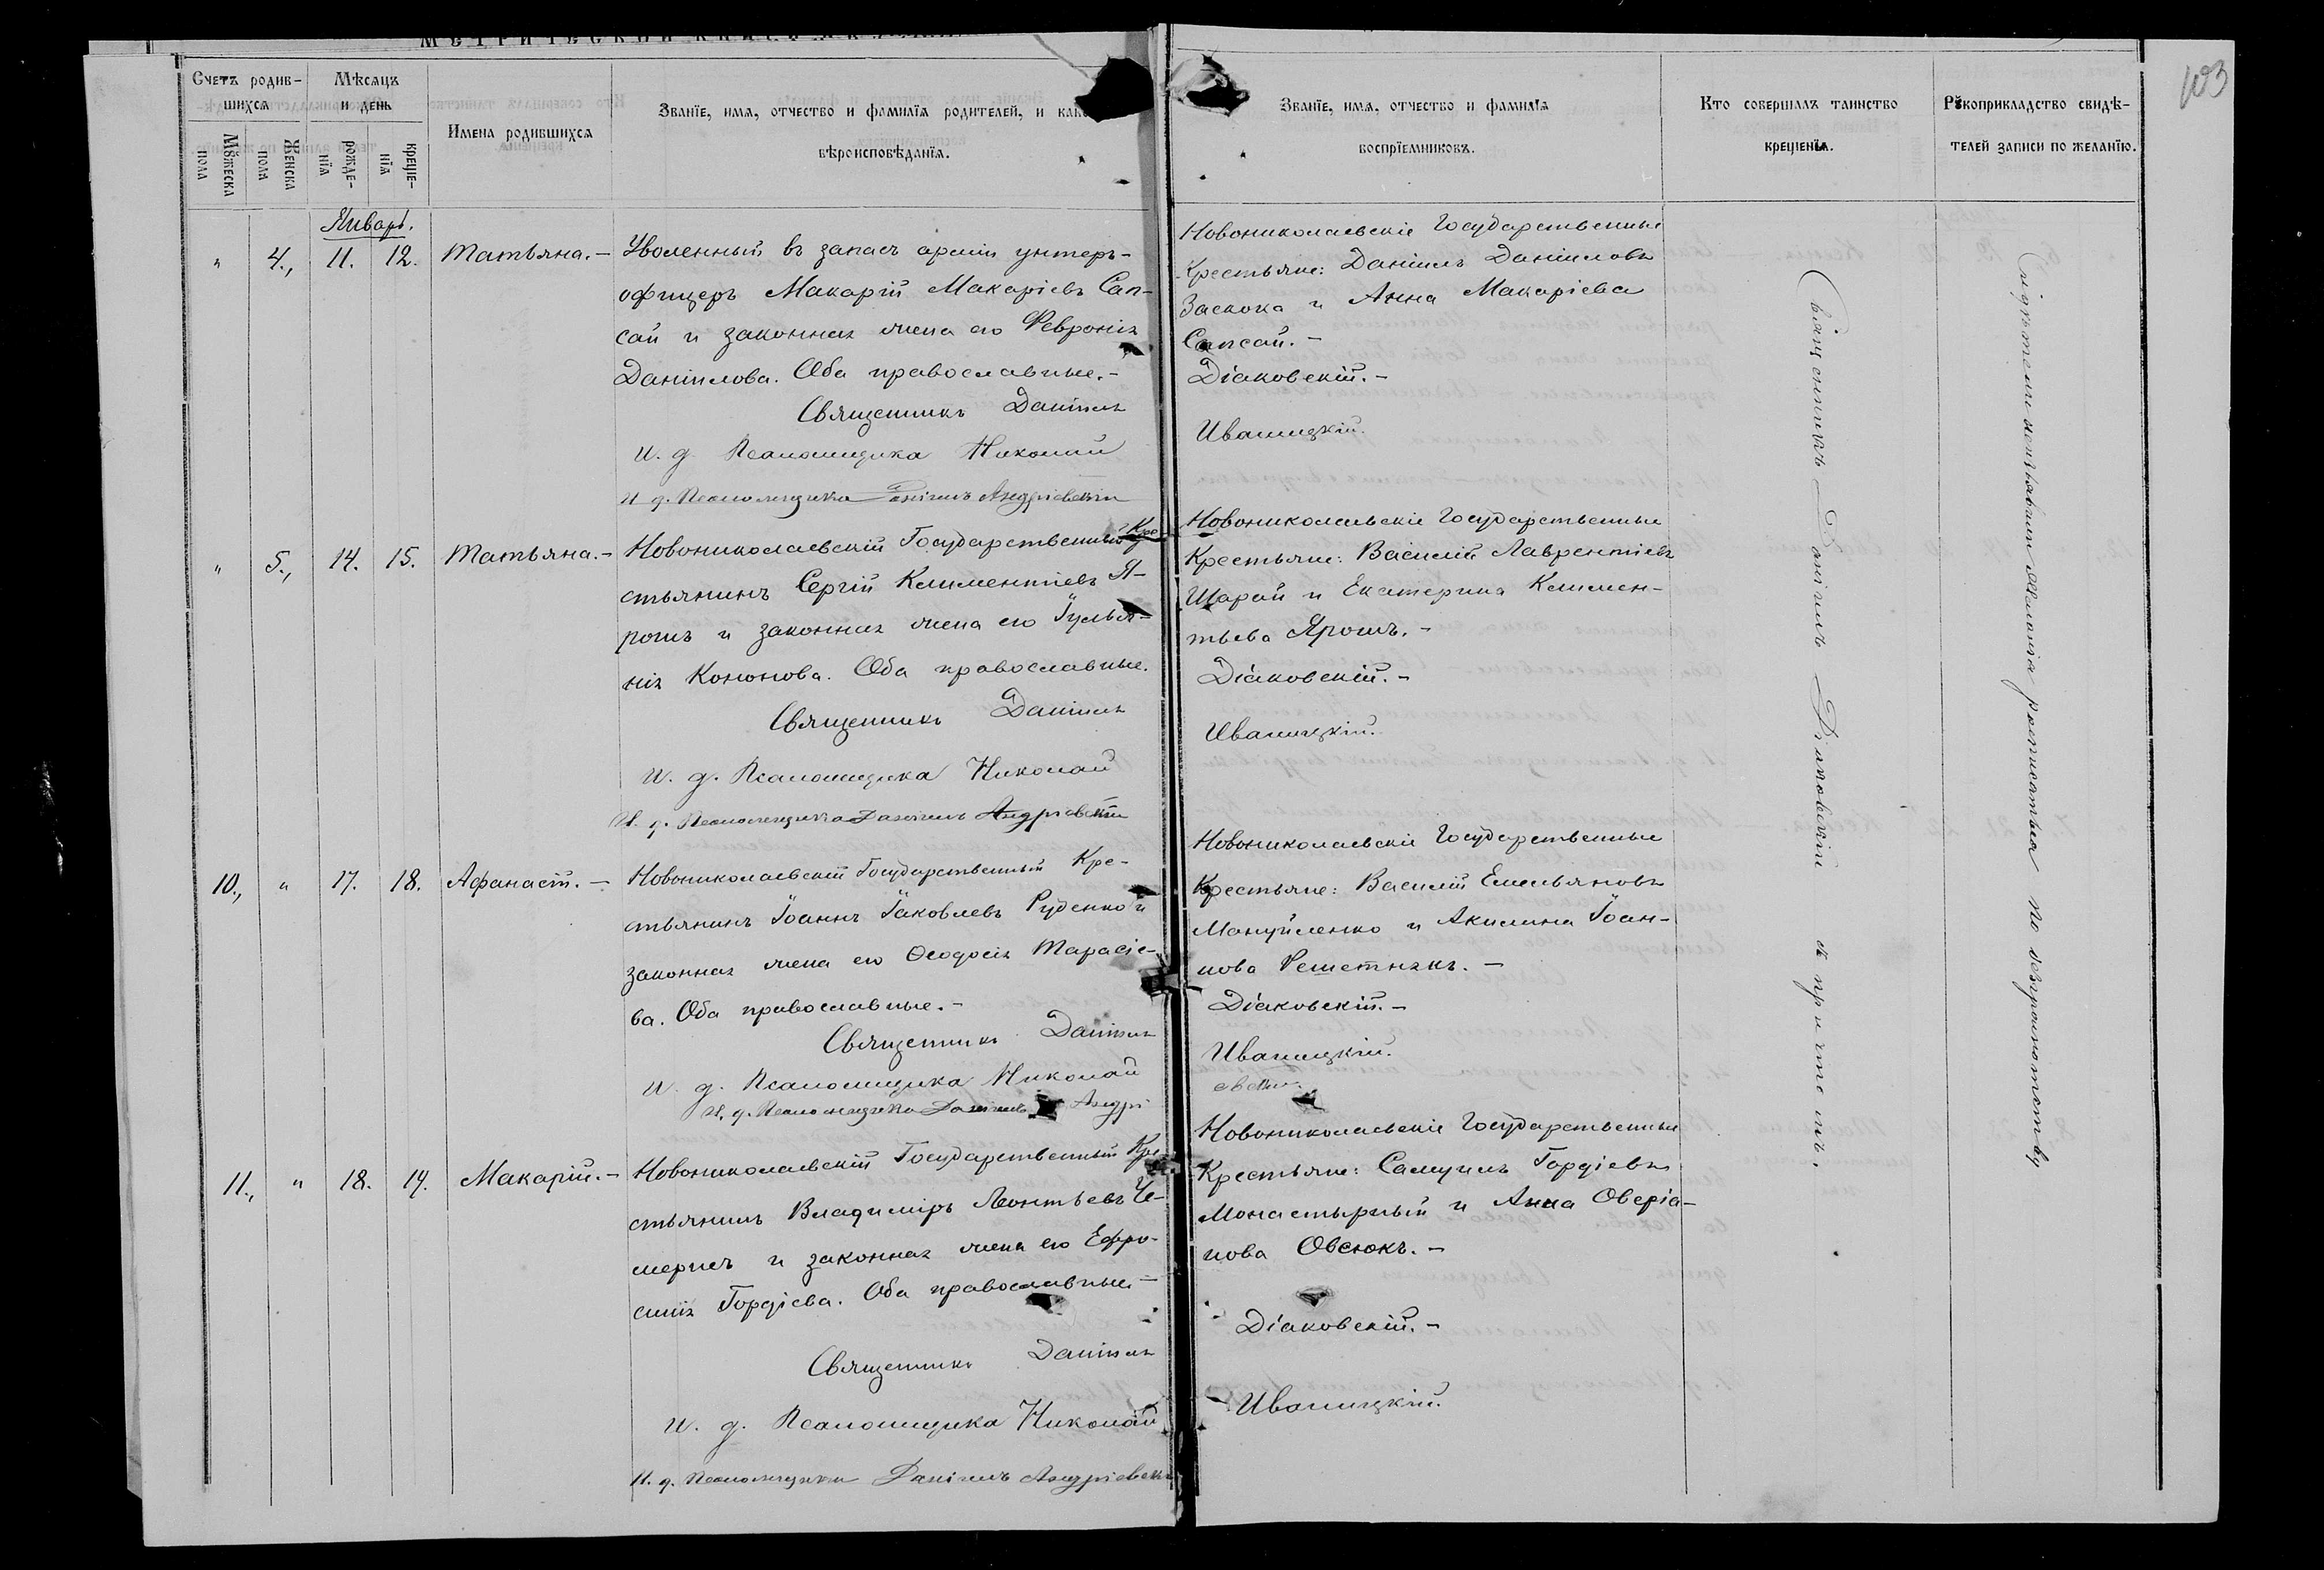 103
Счетъ родив-
шихся
Мꙋжеска
пола
Женска
пола
Мѣсяцъ
и день
рожде-
нїя
креще-
нїя
Имена родившихся
Званїе, имя, отчество и фамилїя родителей, и как
вѣроисповѣданїя.
Званїе, имя, отчество и фамилїя
воспрїемниковъ.
Кто совершалъ таинство
крещенїя.
Рꙋкоприкладство свидѣ-
телей записи по желанїю.
Январь.
" 4., 11. 12. Татьяна. –
Уволенный въ запасъ арміи унтеръ-
офицеръ Макарій Макаріевъ Сап-
сай и законная жена его Февронія
Даніилова. Оба православные. –
Священникъ Даніилъ
И. д. Псаломщика Николай
И д. Псаломщика Даніилъ Андріевскій
Новониколаевскіе Государственные
Крестьяне: Даніилъ Даніиловъ
Заскока и Анна Макаріева
Сапсай. –
Діаковскій. –
Иваницкій.
" 5., 14. 15. Татьяна. –
Новониколаевскій Государственный Кре-
стьянинъ Сергій Климентіевъ Я-
рошъ и законная жена его Іулья-
нія Кононова. Оба православные.
Священникъ Даніилъ
И. д. Псаломщика Николай
И. д. Псаломщика Даніилъ Андріевскій
Новониколаевскіе Государственные
Крестьяне: Василій Лаврентіевъ
Шарай и Екатерина Климен-
тьева Ярошъ. –
Діаковскій. –
Иваницкій.
10., " 17. 18. Афанасій. –
Новониколаевскій Государственный Кре-
стьянинъ Іоаннъ Іаковлевъ Руденко и
законная жена его Ѳеодосія Тарасіе-
ва. Оба православные. –
Священникъ Даніилъ
И. д. Псаломщика Николай
И. д. Псаломщика Даніилъ Андрі
Новониколаевскіе Государственные
Крестьяне: Василій Емельяновъ
Мануйленко и Акилина Іоан-
нова Решетнякъ. –
Діаковскій. –
Иваницкій.
евскій.
11., " 18. 19. Макарій. –
Новониколаевскій Государственный Кре-
стьянинъ Владиміръ Леонтьевъ Че-
мерисъ и законная жена его Ефро-
синія Гордіева. Оба православные. –
Священникъ Даніилъ
И. д. Псаломщика Николай
И. д. Псаломщика Даніилъ Андріевскій
Новониколаевскіе Государственные
Крестьяне: Самуилъ Гордіевъ
Монастырный и Анна Оверіа-
нова Овсюкъ. –
Діаковскій. –
Иваницкій.
Священникъ Даніилъ Діаковскій съ причтомъ.
Свидѣтели не желали росписаться по безграмотству